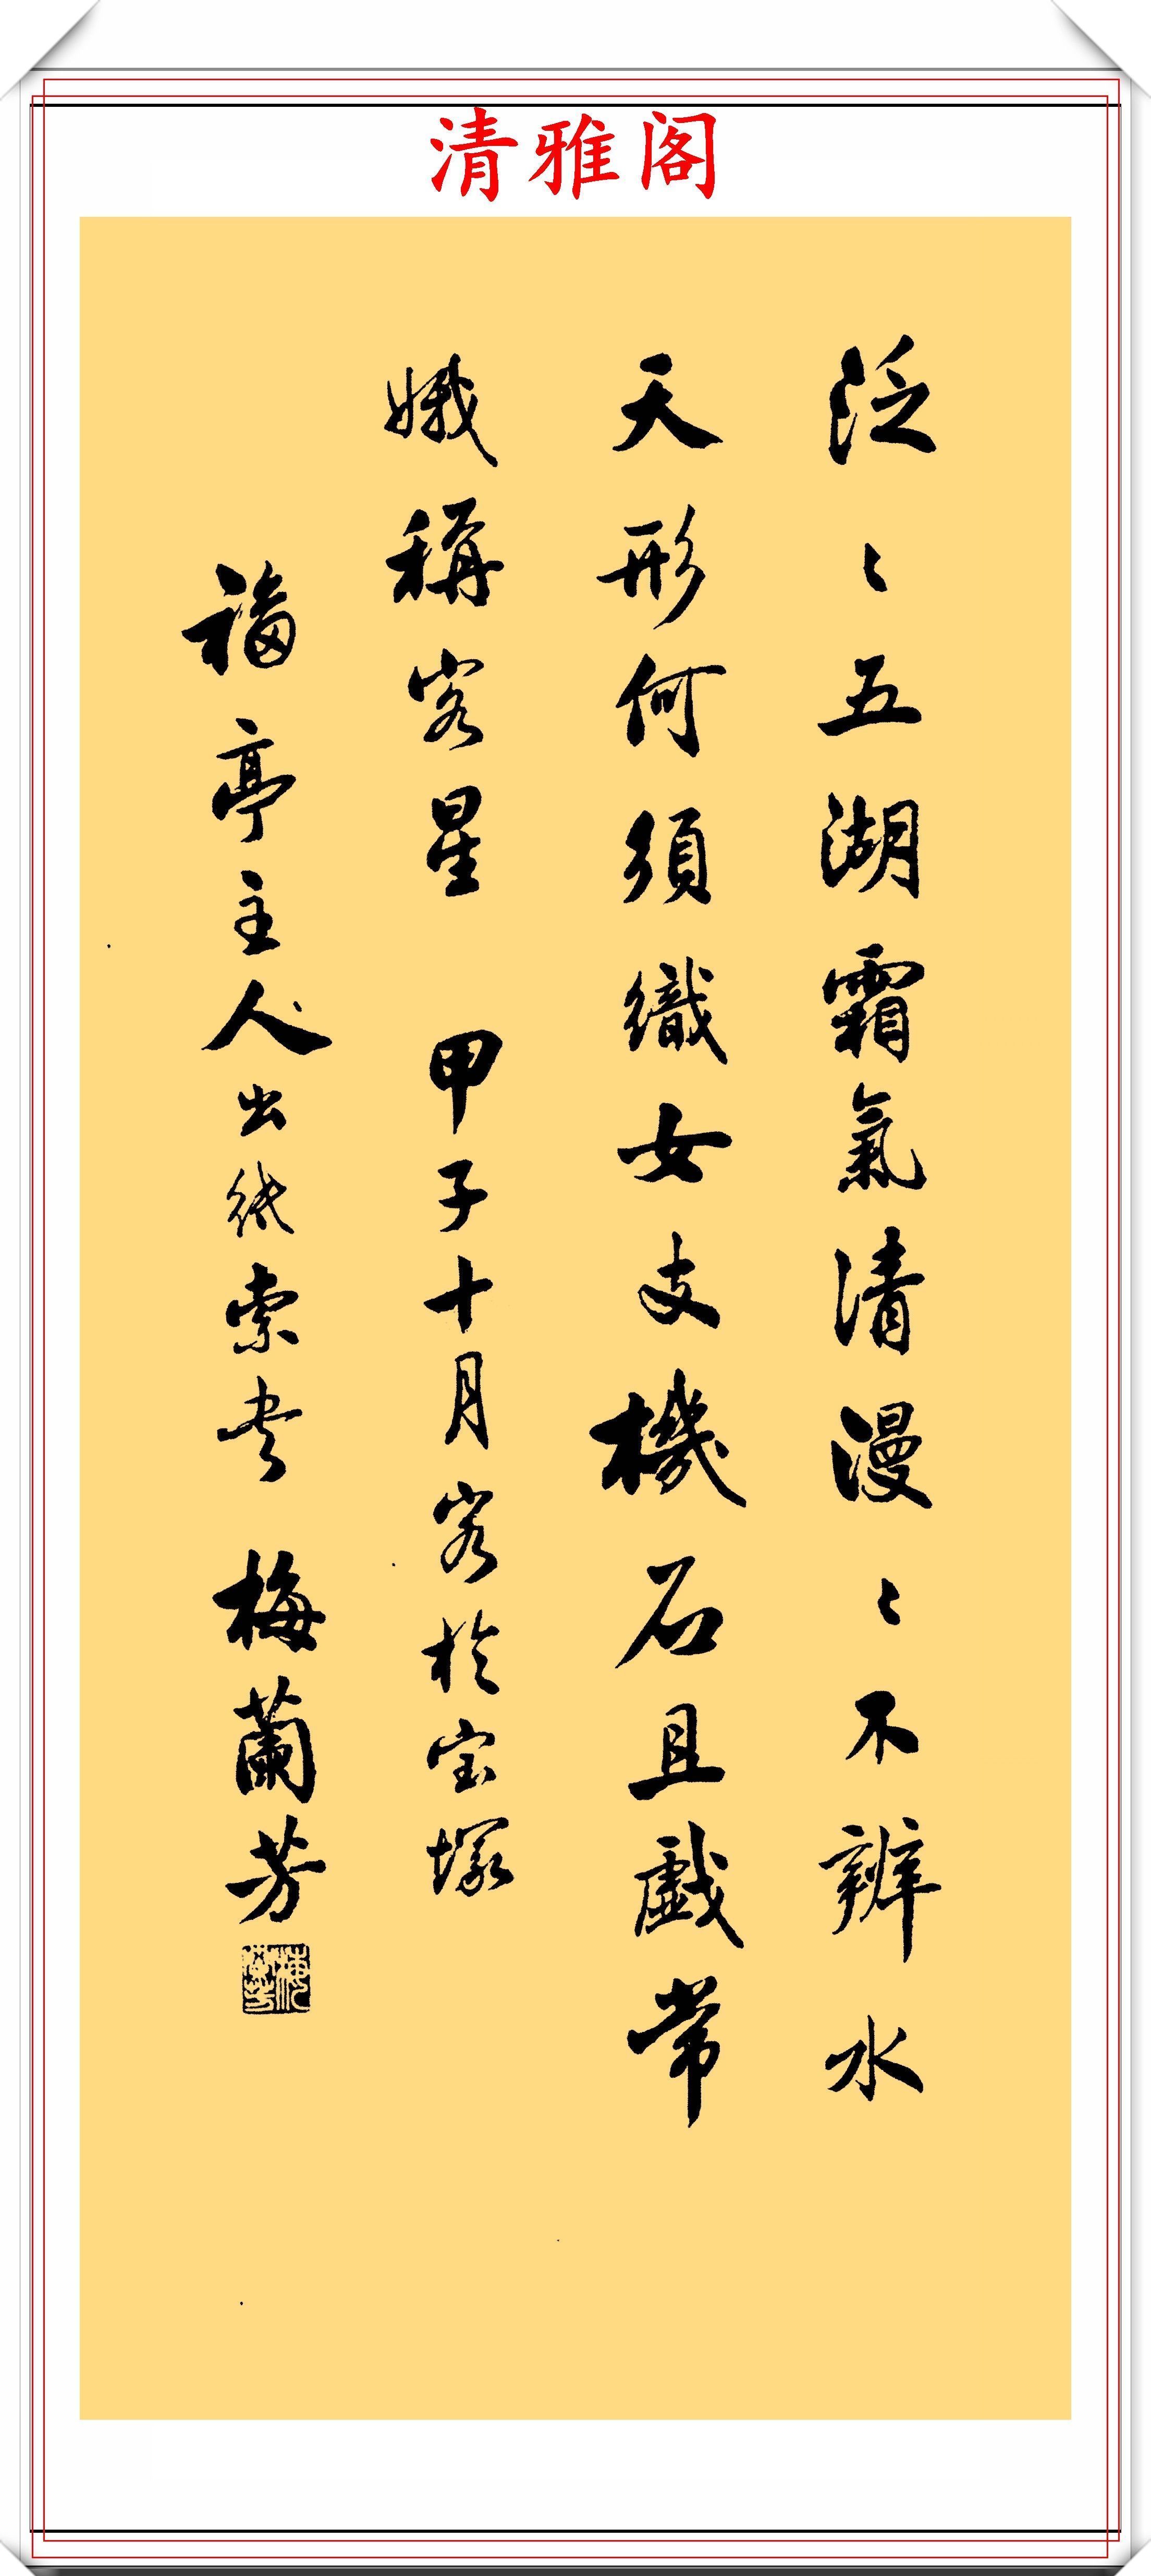 清雅阁
泛〻五湖霜氣清漫〻不辨水
天形何須織女支機石且戲常
娥稱客星 甲子十月客於宝塚
福亭主人出紙索書 梅蘭芳
梅蘭芳